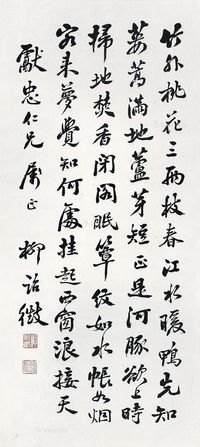 竹外桃花三两枝春江水暖鴨先知
蒌蒿滿地蘆芽短正是河豚欲上時
掃地焚香閉閣眠簟紋如水帳如烟
客来夢覺知何處挂起西窗浪接天
獻忠仁兄屬正 柳詒徵